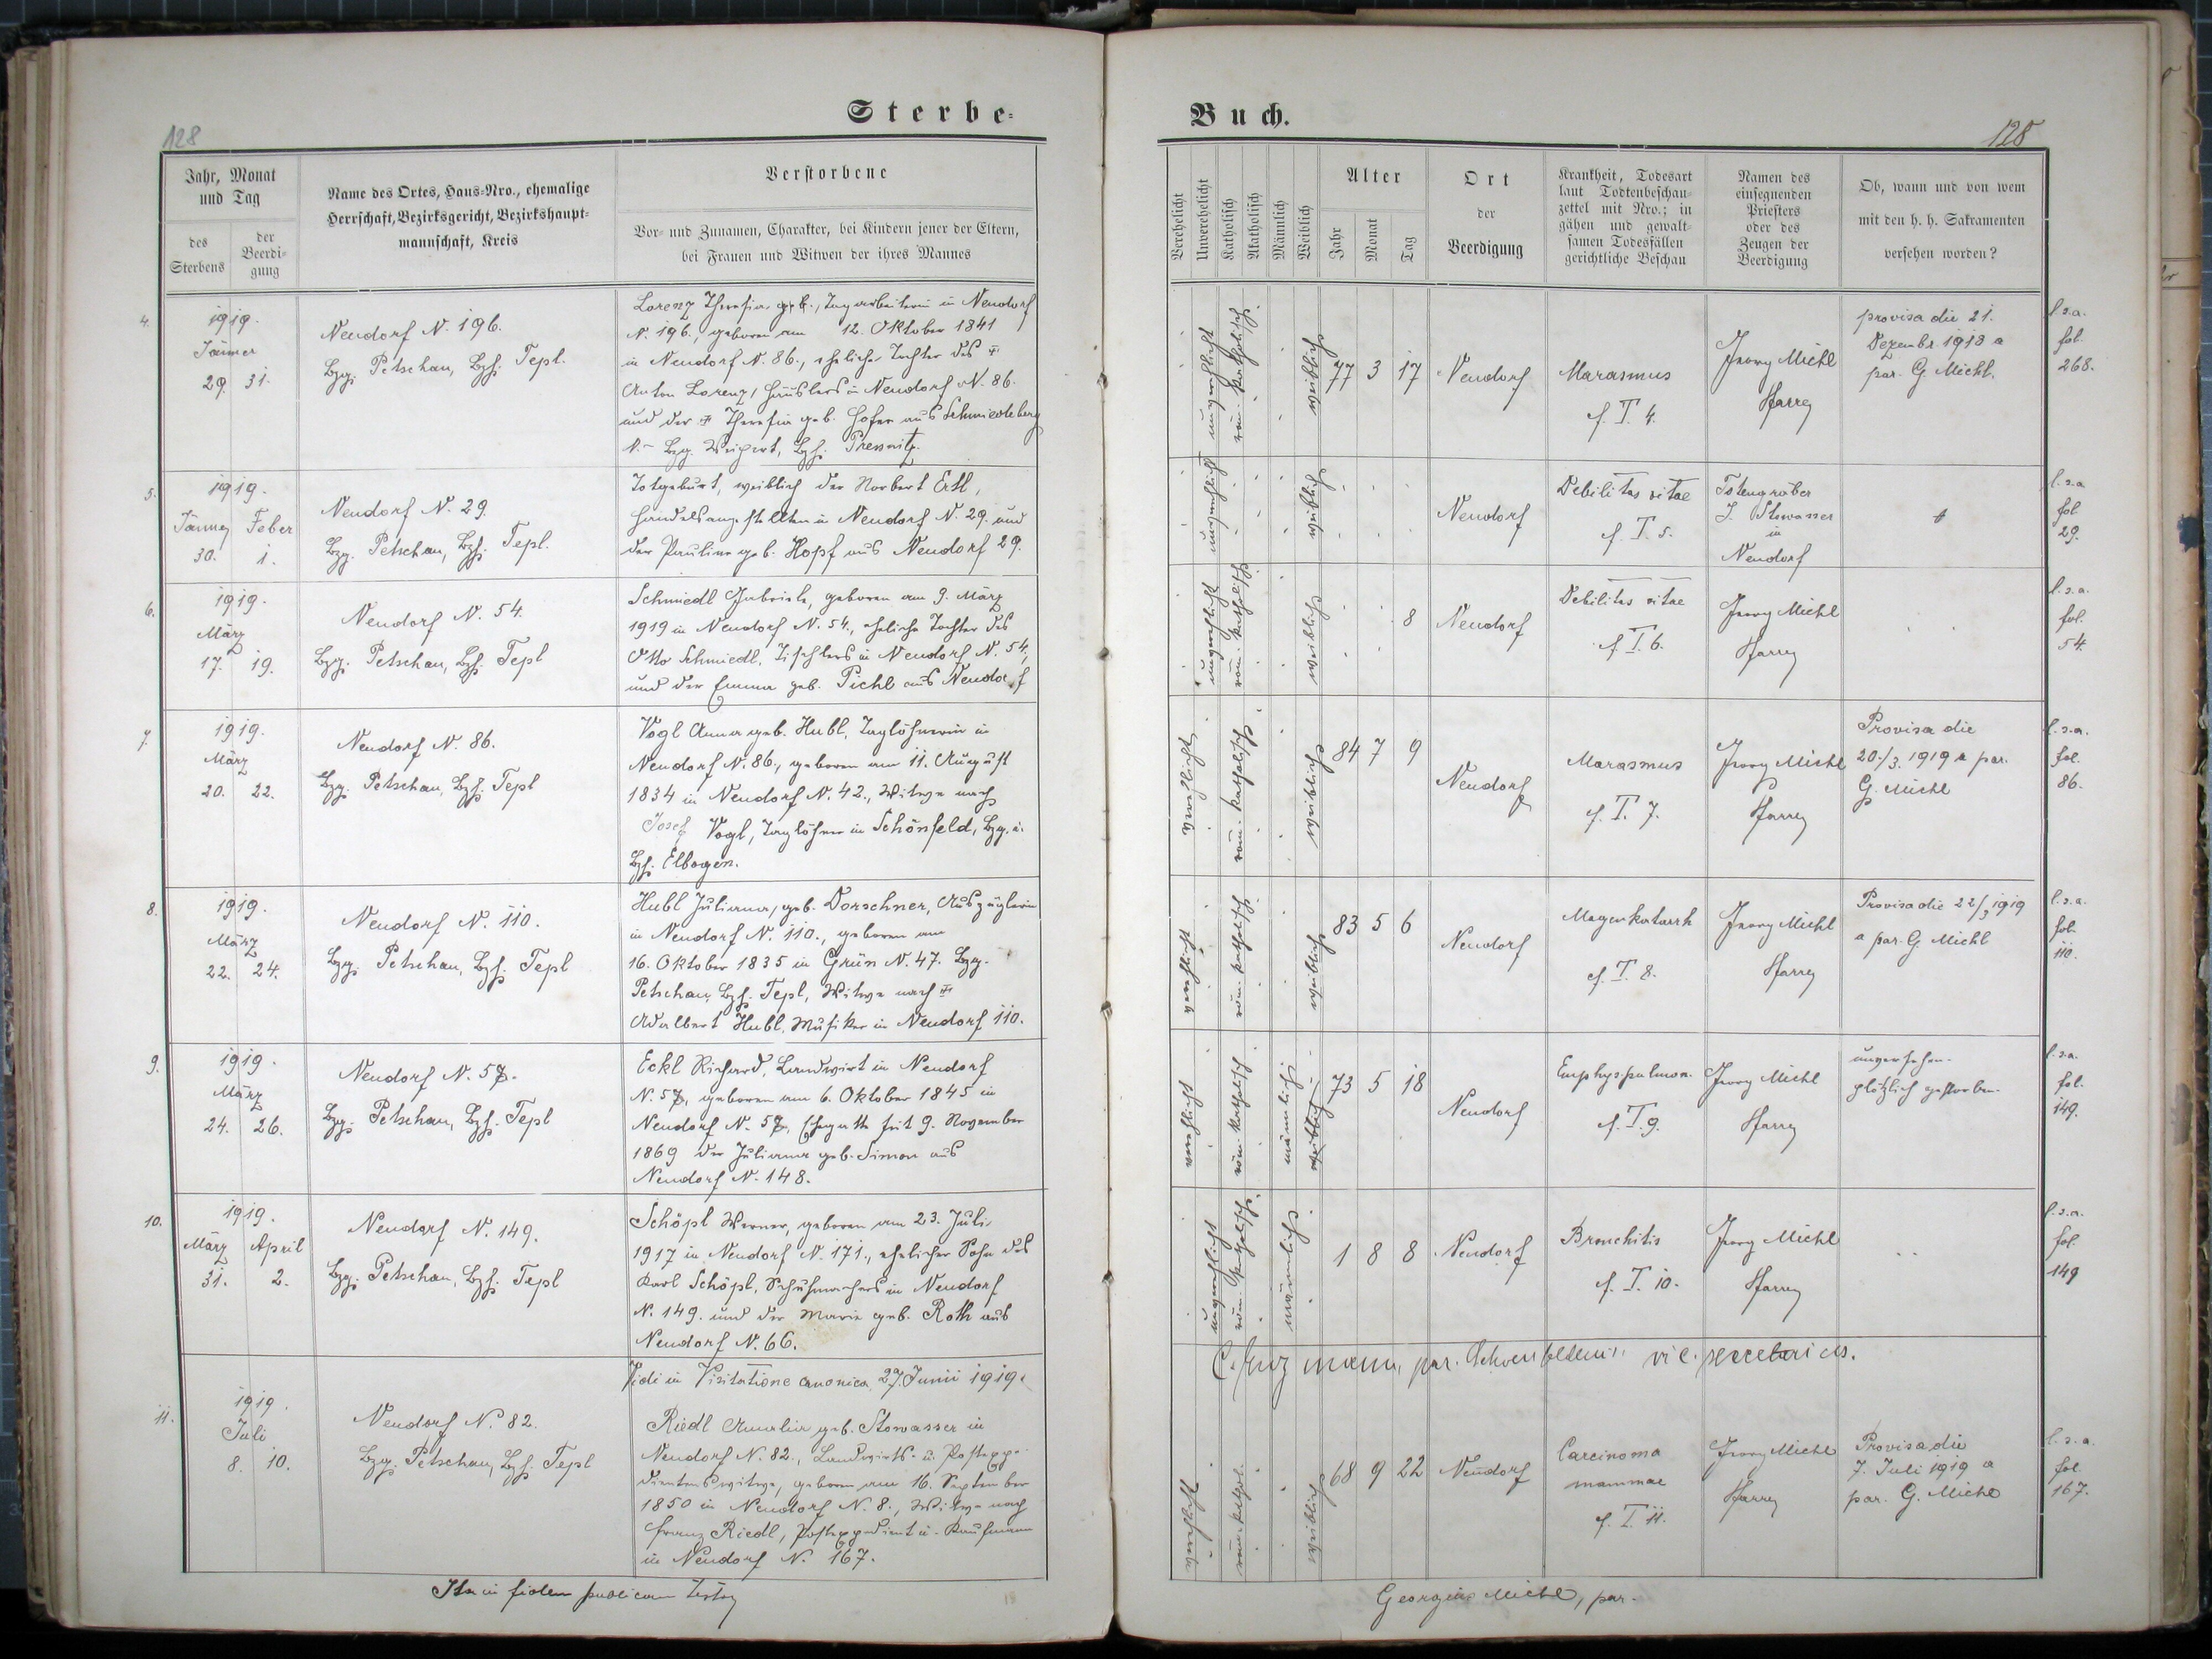 Sterbe-
Buch.
128
128
Jahr, Monat
und Tag
des
Sterbens
der
Beerdi-
gung
Name des Ortes, Haus-Nro., ehemalige
Herrschaft, Bezirksgericht, Bezirkshaupt-
mannschaft, Kreis
Verstorbene
Vor- und Zunamen, Charakter, bei Kindern jener der Eltern,
bei Frauen und Witwen der ihres Mannes
Verehelicht
Unverehelicht
Katholisch
Akatholisch
Männlich
Weiblich
Alter
Jahr
Monat
Tag
Ort
der
Beerdigung
Krankheit, Todesart
laut Todtenbeschau-
zettel mit Nro.; in
gähen und gewalt-
samen Todesfällen
gerichtliche Beschau
Namen des
einsegnenden
Priesters
oder des
Zeugen der
Beerdigung
Ob, wann und von wem
mit den h. h. Sakramenten
versehen worden?
4.
1919.
Jänner
29. 31.
Neudorf N. 196.
Bzg. Petschau, Bzh. Tepl.
Lorenz Theresia, Tagarbeiterin in Neudorf
N. 196., geboren am 12. Oktober 1841
in Neudorf N. 86., eheliche Tochter des ‡
Anton Lorenz, Häuslers in Neudorf N. 86.
und der ‡ Theresia geb. Hofer aus Schmiedeberg
N. – Bzg. Weipert, Bzh. Pressnitz.
unverehlicht
röm. katholisch.
weiblich
77 3 17
Neudorf
Marasmus
f. T. 4.
Georg Michl
Pfarrer
provisa die 21.
Dezembr. 1918 a
par. G. Michl.
l.s.a.
fol.
268.
5.
1919.
Jänner Feber
30. 1.
Neudorf N. 29.
Bzg. Petschau, Bzh. Tepl.
Totgeburt, weiblich des Norbert Ertl,
Handelsangestellten in Neudorf N. 29. und
der Pauline geb. Hopf aus Neudorf 29.
unverehlicht
weiblich
Neudorf
Debilitas vitae
f. T. 5.
Totengräber
J. Stowasser
in
Neudorf
l.s.a
fol
29.
6.
1919.
März
17. 19.
Neudorf N. 54.
Bzg. Petschau, Bzh. Tepl
Schmiedl Gabriele, geboren am 9. März
1919 in Neudorf N. 54., eheliche Tochter des
Otto Schmiedl, Tischlers in Neudorf N. 54,
und der Emma geb. Pichl aus Neudorf
unverehlicht
röm. katholisch
weiblich
8
Neudorf
Debilitas vitae
f. T. 6.
Georg Michl
Pfarrer
l.s.a.
fol.
54.
7.
1919.
März
20. 22.
Neudorf N. 86.
Bzg. Petschau, Bzh. Tepl
Vogl Anna geb. Hubl, Taglöhnerin in
Neudorf N. 86., geboren am 11. August
1834 in Neudorf N. 42., Witwe nach
Josef Vogl, Taglöhner in Schönfeld, Bzg. u.
Bzh. Elbogen.
verehlicht
röm. katholisch.
weiblich
84 7 9
Neudorf
Marasmus
f. T. 7.
Georg Michl
Pfarrer
Provisa die
20./3. 1919 a par.
G. Michl
l.s.a.
fol.
86.
8.
1919.
März
22. 24.
Neudorf N. 110.
Bzg. Petschau, Bzh. Tepl
Hubl Juliana, geb. Dorschner, Auszüglerin
in Neudorf N. 110., geboren am
16. Oktober 1835 in Grün N. 47. Bzg.
Petschau, Bzh. Tepl, Witwe nach ‡
Adalbert Hubl, Musiker in Neudorf 110.
verehlicht
röm. katholisch
weiblich
83 5 6
Neudorf
Magenkatarrh
f. T. 8.
Georg Michl
Pfarrer
Provisa die 22/3 1919
a par. G. Michl
l.s.a.
fol.
110.
9.
1919.
März
24. 26.
Neudorf N. 57.
Bzg. Petschau, Bzh. Tepl
Eckl Richard, Landwirt in Neudorf
N. 57, geboren am 6. Oktober 1845 in
Neudorf N. 57, Ehegatte seit 9. November
1869 der Juliana geb. Simon aus
Neudorf N. 148.
verehlicht
röm. katholisch
männlich
weiblich
73 5 18
Neudorf
Emphys. pulmon.
f. T. 9.
Georg Michl
Pfarrer
unversehen.
plötzlich gestorben.
l.s.a.
fol.
149.
10.
1919.
März April
31. 2.
Neudorf N. 149.
Bzg. Petschau, Bzh. Tepl
Schöpl Werner, geboren am 23. Juli
1917 in Neudorf N. 171., ehelicher Sohn des
Karl Schöpl, Schuhmachers in Neudorf
N. 149. und der Marie geb. Roth aus
Neudorf N. 66.
unverehlicht
röm. katholisch.
männlich.
1 8 8
Neudorf
Bronchitis
f. T. 10.
Georg Michl
Pfarrer
l.s.a.
fol.
149
Vidi in Visitatione canonica 27. Junii 1919.
par. vic. secretarius.
11.
1919.
Juli
8. 10.
Neudorf N. 82.
Bzg. Petschau, Bzh. Tepl
Riedl Amalia geb. Stowasser in
Neudorf N. 82., Landwirts- u. Postexpe-
dientenswitwe, geboren am 16. September
1850 in Neudorf N. 8., Witwe nach
Franz Riedl, Postexpedient u. Kaufmann
in Neudorf N. 167.
verehlicht
röm. kathol.
weiblich
68 9 22
Neudorf
Carcinoma
mammae
f. T. 11.
Georg Michl
Pfarrer
Provisa die
7. Juli 1919 a
par. G. Michl
l.s.a.
fol.
167.
Ita in fidem publicam testor
Georgius Michl, par.